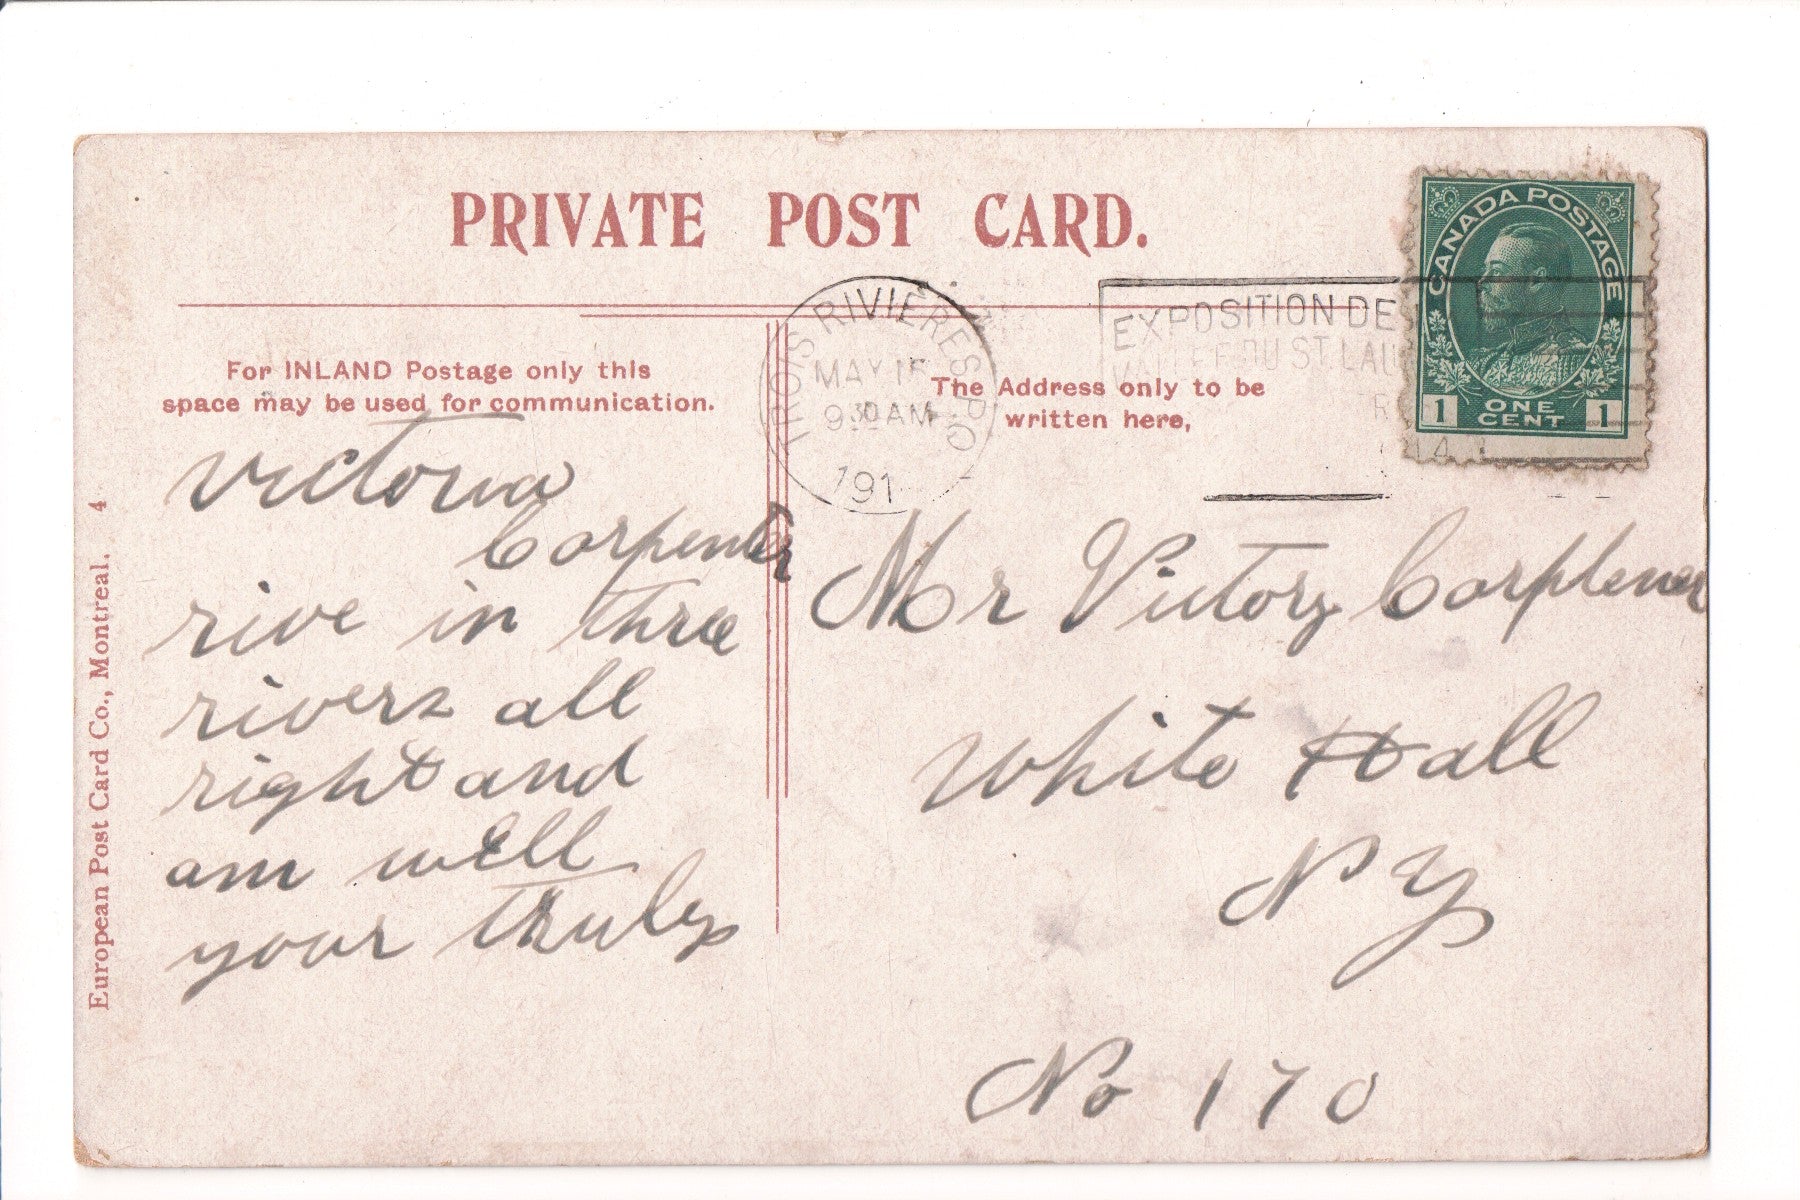 PRIVATE POST CARD.
For INLAND Postage only this
space may be used for communication.
The Address only to be
written here,
TROIS RIVIÈRES P.Q.
MAY
9 30 AM
191
EXPOSITION DE
ST. LAU
CANADA POSTAGE
1 ONE CENT 1
Victoria
Carpenter
rive in three
rivers all
right and
am well
your truly
Mr Victory Carpltener
White Hall
N Y
No 170
European Post Card Co., Montreal. 4